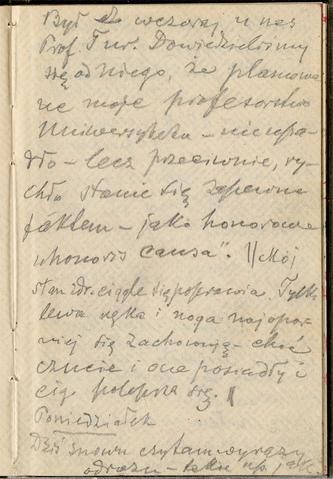 Był wczoraj u nas
Prof. Tur. Dowiedzieliśmy
się od Niego, że planowa
ne moje profesorstwo
Uniwersytetu – nie upa-
dło – lecz przeciwnie, ry-
chło stanie się zapewne
faktem – jako honorowe
"honoris causa". || Mój
stan zdr. ciągle się poprawia. Tylko
lewa ręka i noga najopor-
niej się zachowują – choć
czucie i one posiadły i
ciąg. polepsza się. ||
Poniedziałek
Dziś znowu czytam wyrazy
odrazu – takie np. jak-